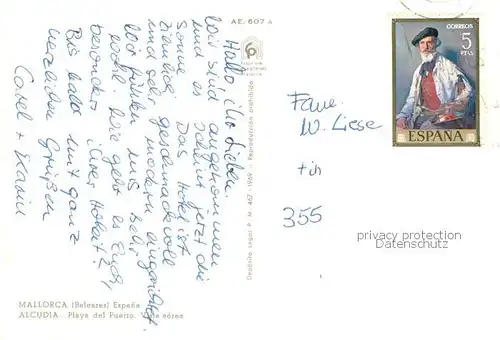 AE. 607 A
Hallo, ihr Lieben.
Wir sind angekommen
und es scheint jetzt die
Sonne. Das Hotel ist
ziemlich geschmackvoll
und sehr modern eingerichtet.
Wir fühlen uns sehr
wohl. Wie geht es Euch,
besonders ihrer
Bis bald mit ganz
herzlichen Grüßen
+
Depósito Legal P. M. 467 - 1969
Reproducción prohibida
MALLORCA (Baleares) España
ALCUDIA. Playa del Puerto. Vista aérea
CORREOS
5
PTAS
ESPAÑA
W. Liese
355
privacy protection
Datenschutz